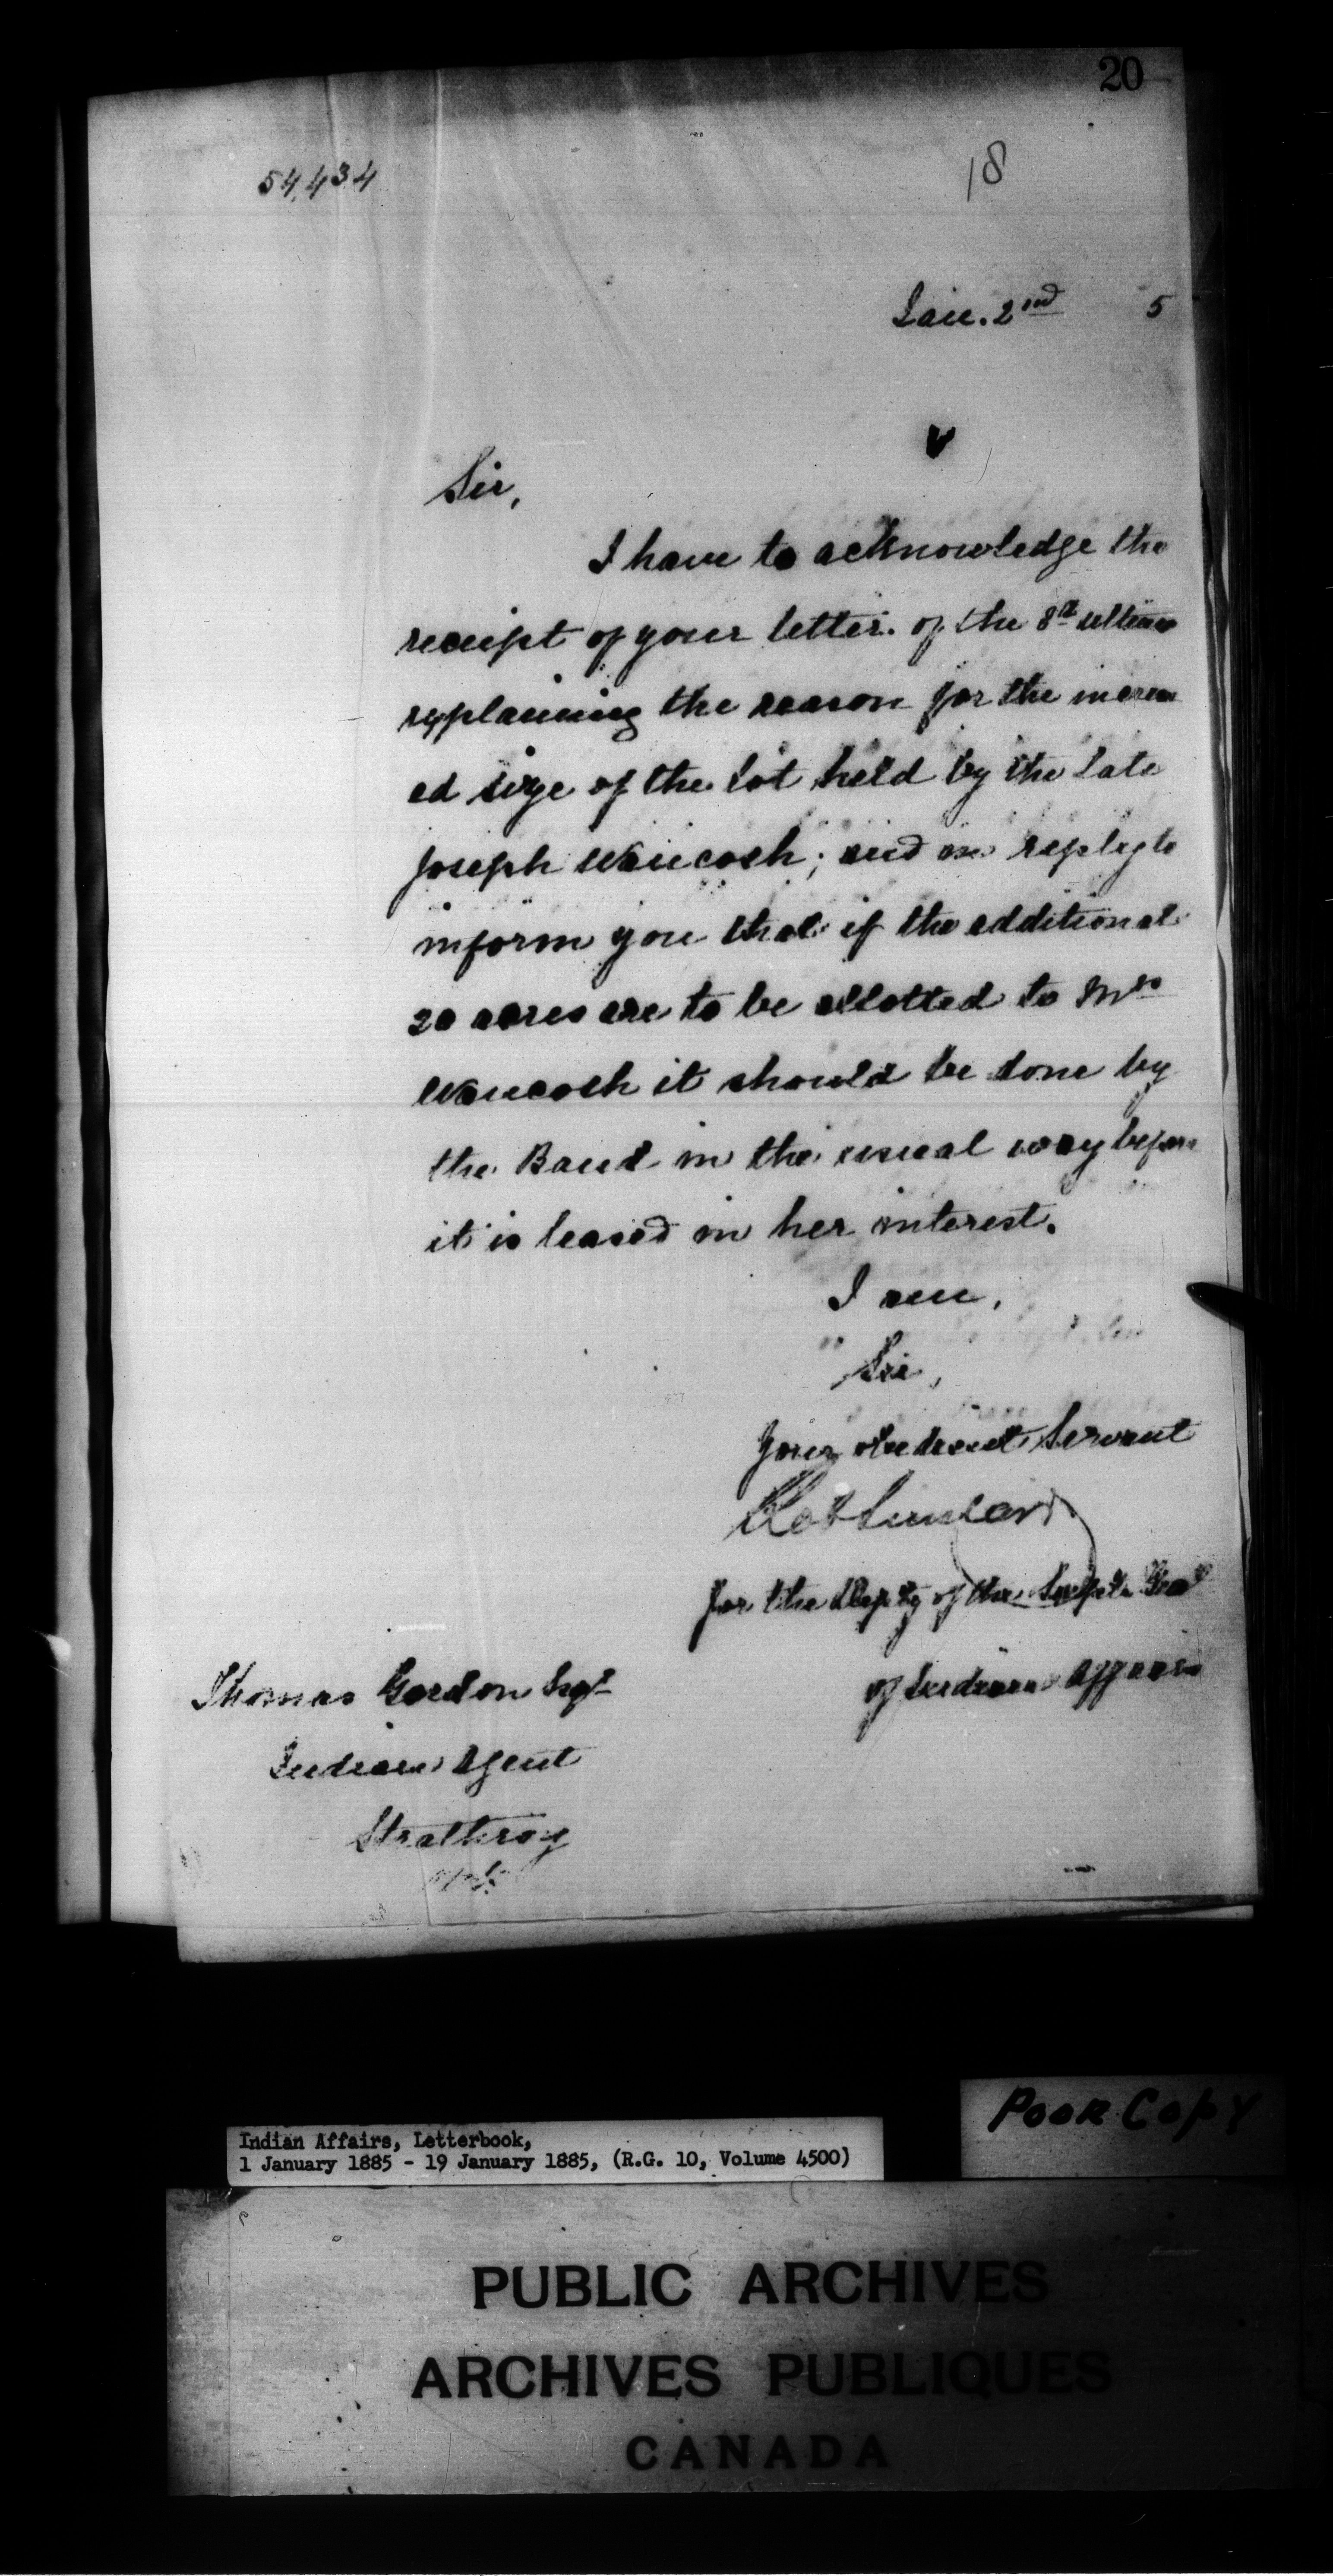 20
54,434
18
Jan. 2nd 5
Sir,
I have to acknowledge the
receipt of your letter of the 8th ultimo
explaining the reason for the increas
ed size of the lot held by the late
Joseph Waucosh; and in reply to
inform you that if the additional
20 acres are to be allotted to Mrs
Waucosh it should be done by
the Band in the usual way before
it is leased in her interest.
I am,
Sir,
Your obedient Servant
for the Depty of the Supt. Genl
of Indian Affairs
Thomas Gordon Esqr
Indian Agent
Strathroy
Poor Copy
Indian Affairs, Letterbook,
1 January 1885 - 19 January 1885, (R.G. 10, Volume 4500)
PUBLIC ARCHIVES
ARCHIVES PUBLIQUES
CANADA